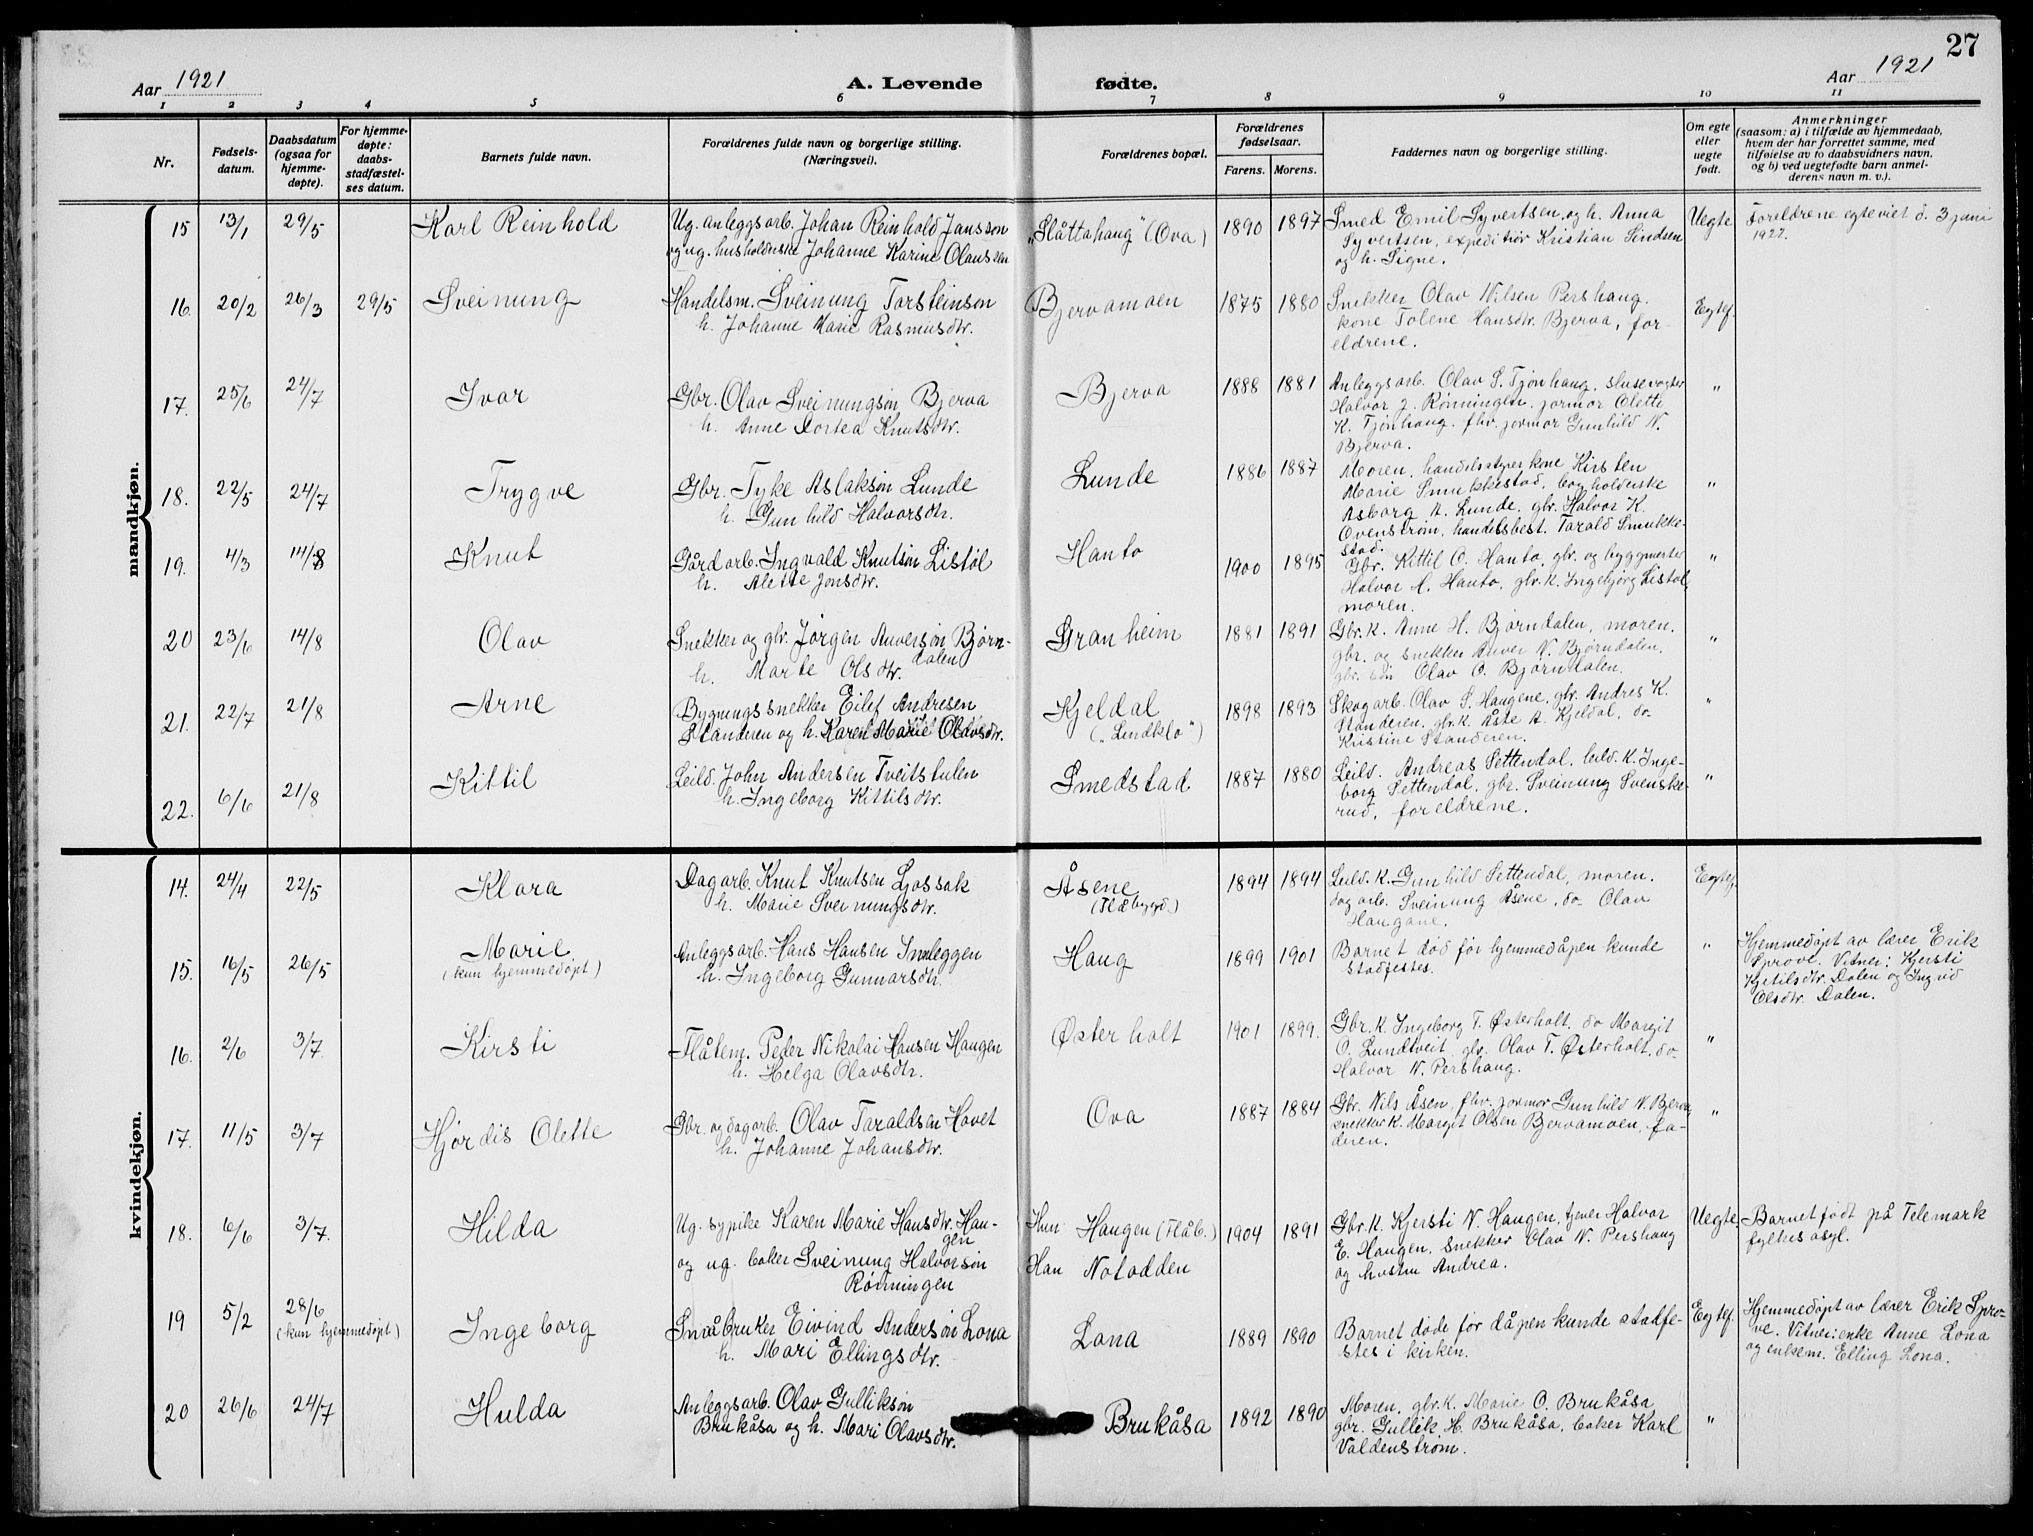 27
Aar 1921
A. Levende fødte.
Aar 1921
1 2 3 4 5 6 7 8 9 10 11
Nr.
Fødsels-
datum.
Daabsdatum
(ogsaa for
hjemme-
døpte).
For hjemme-
døpte:
daabs-
stadfæstel-
ses datum.
Barnets fulde navn.
Forældrenes fulde navn og borgerlige stilling.
(Næringsvei).
Forældrenes bopæl.
Forældrenes
fødselsaar.
Farens. Morens.
Faddernes navn og borgerlige stilling.
Om egte
eller
uegte
født.
Anmerkninger
(saasom: a) i tilfælde av hjemmedaab,
hvem der har forrettet samme, med
tilføielse av to daabsvidners navn,
og b) ved uegtefødte barn anmel-
derens navn m. v.).
mandkjøn.
15 13/1 29/5 Karl Reinhold
Ug. anleggsarb. Johan Reinhold Jansson
og ug. husholderske Johanne Karine Olaussen
"Slåttahaug" (Ova) 1890 1897
Smed Emil Syvertsen, og h. Anna
Syvertsen, expeditiør Kristian Lindsen
og h. Signe.
Uegte
Foreldrene egteviet d. 3 juni
1922.
16. 20/2 26/3 29/5 Sveinung
Handelsm. Sveinung Torsteinson
h. Johanne Marie Rasmusdtr.
Bjervamoen 1875 1880
Snekker Olav Nilsen Pershaug.
kone Tolene Hansdtr. Bjerva, for-
eldrene.
Egtef.
17. 25/6 24/7 Ivar
Gbr. Olav Sveinungson Bjerva
h. Anne Dortea Knutsdtr.
Bjerva 1888 1881
Anleggsarb. Olav S. Tjønhaug, slusevogter
Halvor J. Rønningen, jormor Olette
K. Tjønhaug, fhv. jormor Gunhild N.
Bjerva.
"
18. 22/5 24/7 Trygve
Gbr. Tyke Aslakson Lunde
h. Gunhild Halvorsdtr.
Lunde 1886 1887
Moren, handelsstyrer kone Kirsten
Marie Smukkestad, bogholderske
Asborg A. Lunde, gbr. Halvor K.
Ovenstrøm, handelsbest. Tarald Smukke-
stad.
"
19. 4/3 14/8 Knut
Gårdarb. Ingvald Knutson Listøl
h. Alette Jonsdtr.
Hanto 1900 1895
Gbr. Kittil O. Hanto, gbr. og byggmester
Halvor A. Hanto, gbr. k. Ingebjørg Listøl,
moren.
"
20 23/6 14/8 Olav
Snekker og gbr. Jørgen Anverson Bjørn-
dalen
h. Marte Olsdtr.
Granheim 1881 1891
Gbr. k. Anne H. Bjørndalen, moren.
gbr. og snekker Anver N. Bjørndalen,
gbr. søn Olav O. Bjørndalen.
"
21. 22/7 21/8 Arne
Bygningssnekker Eilef Andresen
Standeren og h. Karen Marie Olavsdtr.
Kjeldal
("Lindklo") 1898 1893
Skogarb. Olav S. Haugene, gbr. Andres K.
Standeren, gbr. k. Åste A. Kjeldal, do
Kristine Standeren.
"
22. 6/6 21/8 Kittil
Leild. John Andersen Tveitstulen
h. Ingeborg Kittilsdtr.
Smedstad 1887 1880
Leild. Andreas Settendal, leild. k. Inge-
borg Settendal, gbr. Sveinung Svenske-
rud, foreldrene.
"
kvindekjøn.
14. 24/4 22/5 Klara
Dagarb. Knut Knutsen Gjossak
h. Marie Sveinungsdtr.
Åsene
(Flåbygd.) 1894 1894
Leild. k. Gunhild Settendal, moren.
dagarb. Sveinung Åsene, do Olav
Haugane.
Egtef.
15. 16/5 26/5 Marie
(kun hjemmedøpt)
Anleggsarb. Hans Hansen Innleggen
h. Ingeborg Gunnarsdtr.
Haug 1899 1901
Barnet død før hjemmedåpen kunde
stadfestes.
"
Hjemmedøpt av lærer Erik
Sprove. Vitner: Kjersti
Kjetilsdtr. Dalen og Ingrid
Olsdtr. Dalen.
16. 2/6 3/7. Kirsti
Flåtem. Peder Nikolai Hansen Haugen
h. Helga Olavsdtr.
Østerholt 1901 1899.
Gbr. k. Ingeborg T. Østerholt, do Margit
O. Lundtveit, gbr. Olav T. Østerholt, do
Halvor N. Pershaug.
"
17. 11/5 3/7 Hjørdis Olette
Gbr. og dagarb. Olav Taraldsen Hovet
h. Johanne Johansdtr.
Ova 1887 1884
Gbr. Nils Åsen, fhv. jormor Gunhild N. Bjerva,
snekker k. Margit Olsen Bjervamoen, fa-
deren.
"
18. 6/6 3/7. Hilda
Ug. sypike Karen Marie Hansdtr. Hau-
gen
og ug. baker Sveinung Halvorson
Rønningen
Hun Haugen (Flåb.)
Han Notodden 1904 1891
Gbr. k. Kjersti N. Haugen, tjener Halvor
E. Haugen, Snekker Olav N. Pershaug
og hustru Andrea.
Uegte.
Barnet født på Telemark
fylkes asyl.
19 5/2 28/6
(kun hjemmedøpt)
Ingeborg
Småbruker Eivind Anderson Lona
h. Mari Ellingsdtr.
Lona 1889 1890
Barnet døde før dåpen kunde stadfe-
stes i kirken.
Egtef.
Hjemmedøpt av lærer Erik Spro-
ve. Vitner: enke Anne Lona
og enkem. Elling Lona.
20 26/6 24/7 Hulda
Anleggsarb. Olav Gullikson
Brukåsa og h. Mari Olavsdtr.
Brukåsa 1892 1890
Moren, gbr. k. Marie O. Brukåsa
gbr. Gullik H. Brukåsa, baker Karl
Valdenstrøm.
"